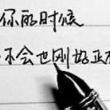 你的时候
不会也刚好正